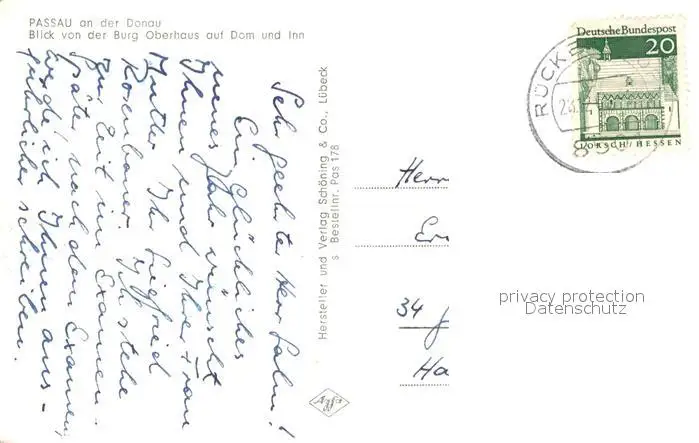 PASSAU an der Donau
Blick von der Burg Oberhaus auf Dom und Inn
Sehr geehrter Herr Salm!
Ein glückliches
neues Jahr wünscht
Ihnen und Ihrer Frau
Mutter Ihr Siegfried
Rosenbauer. Ich stehe
zur Zeit im Examen.
Später nach dem Examen
werde ich Ihnen aus-
führlicher schreiben.
Hersteller und Verlag Schöning & Co., Lübeck
s Bestellnr. Pas 178
Deutsche Bundespost
20
LORSCH/HESSEN
RÜCKE
23.
Herrn
34
Ha
privacy protection
Datenschutz